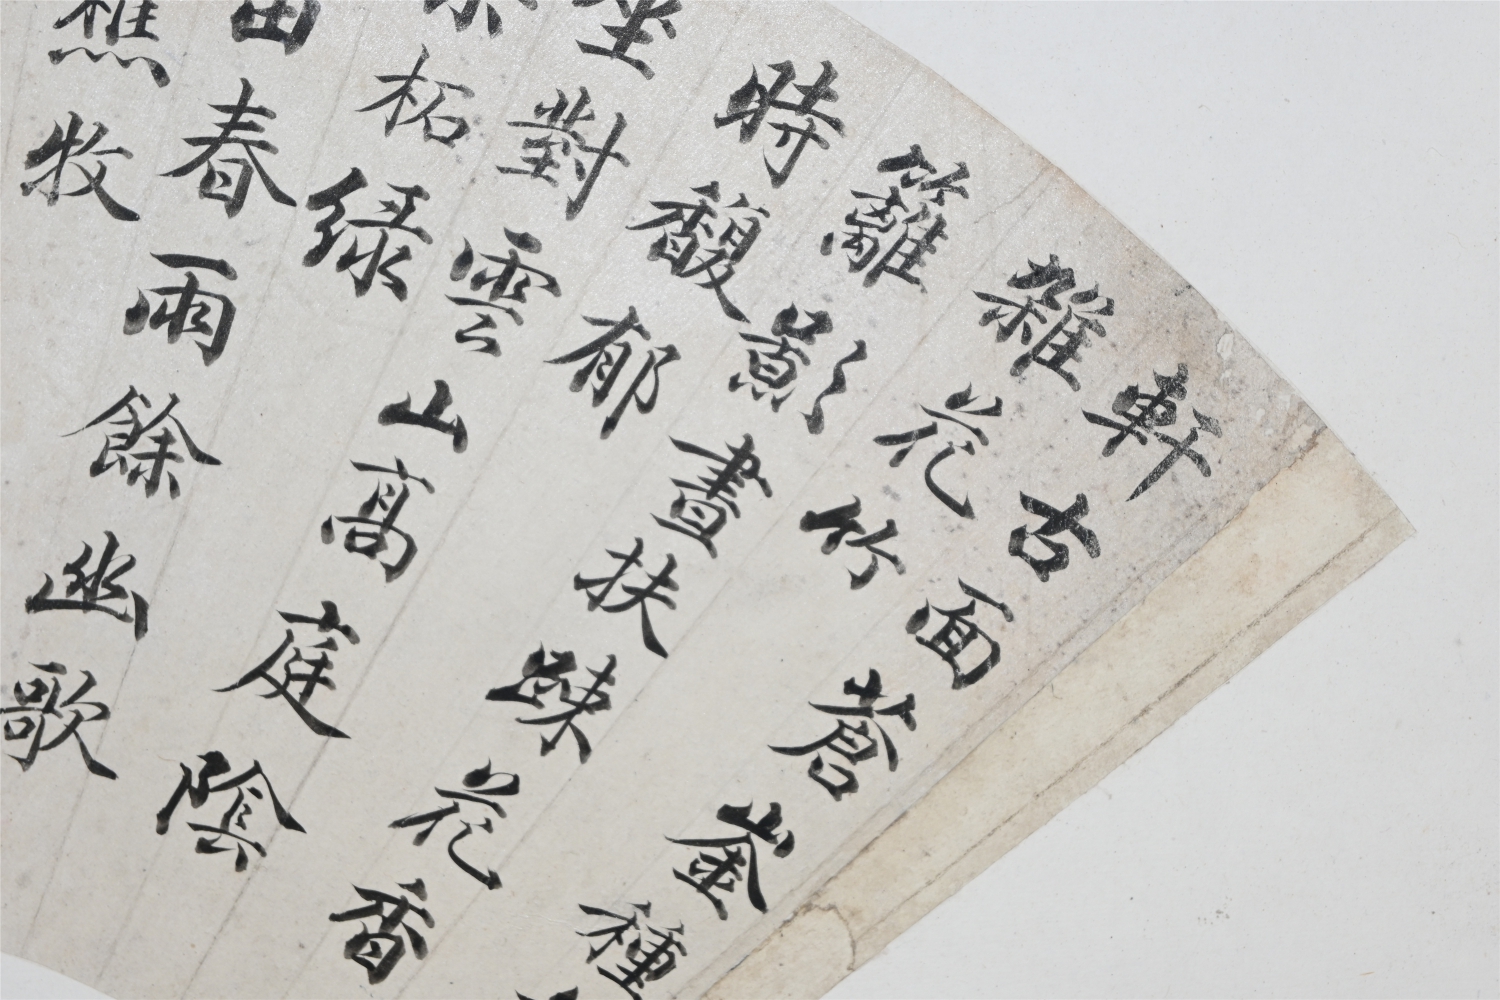 軒古面蒼崟種
雜花竹
籬影晝扶疎花香
時馥郁
坐對雲山高庭陰
柘綠
田春雨餘幽歌
樵牧